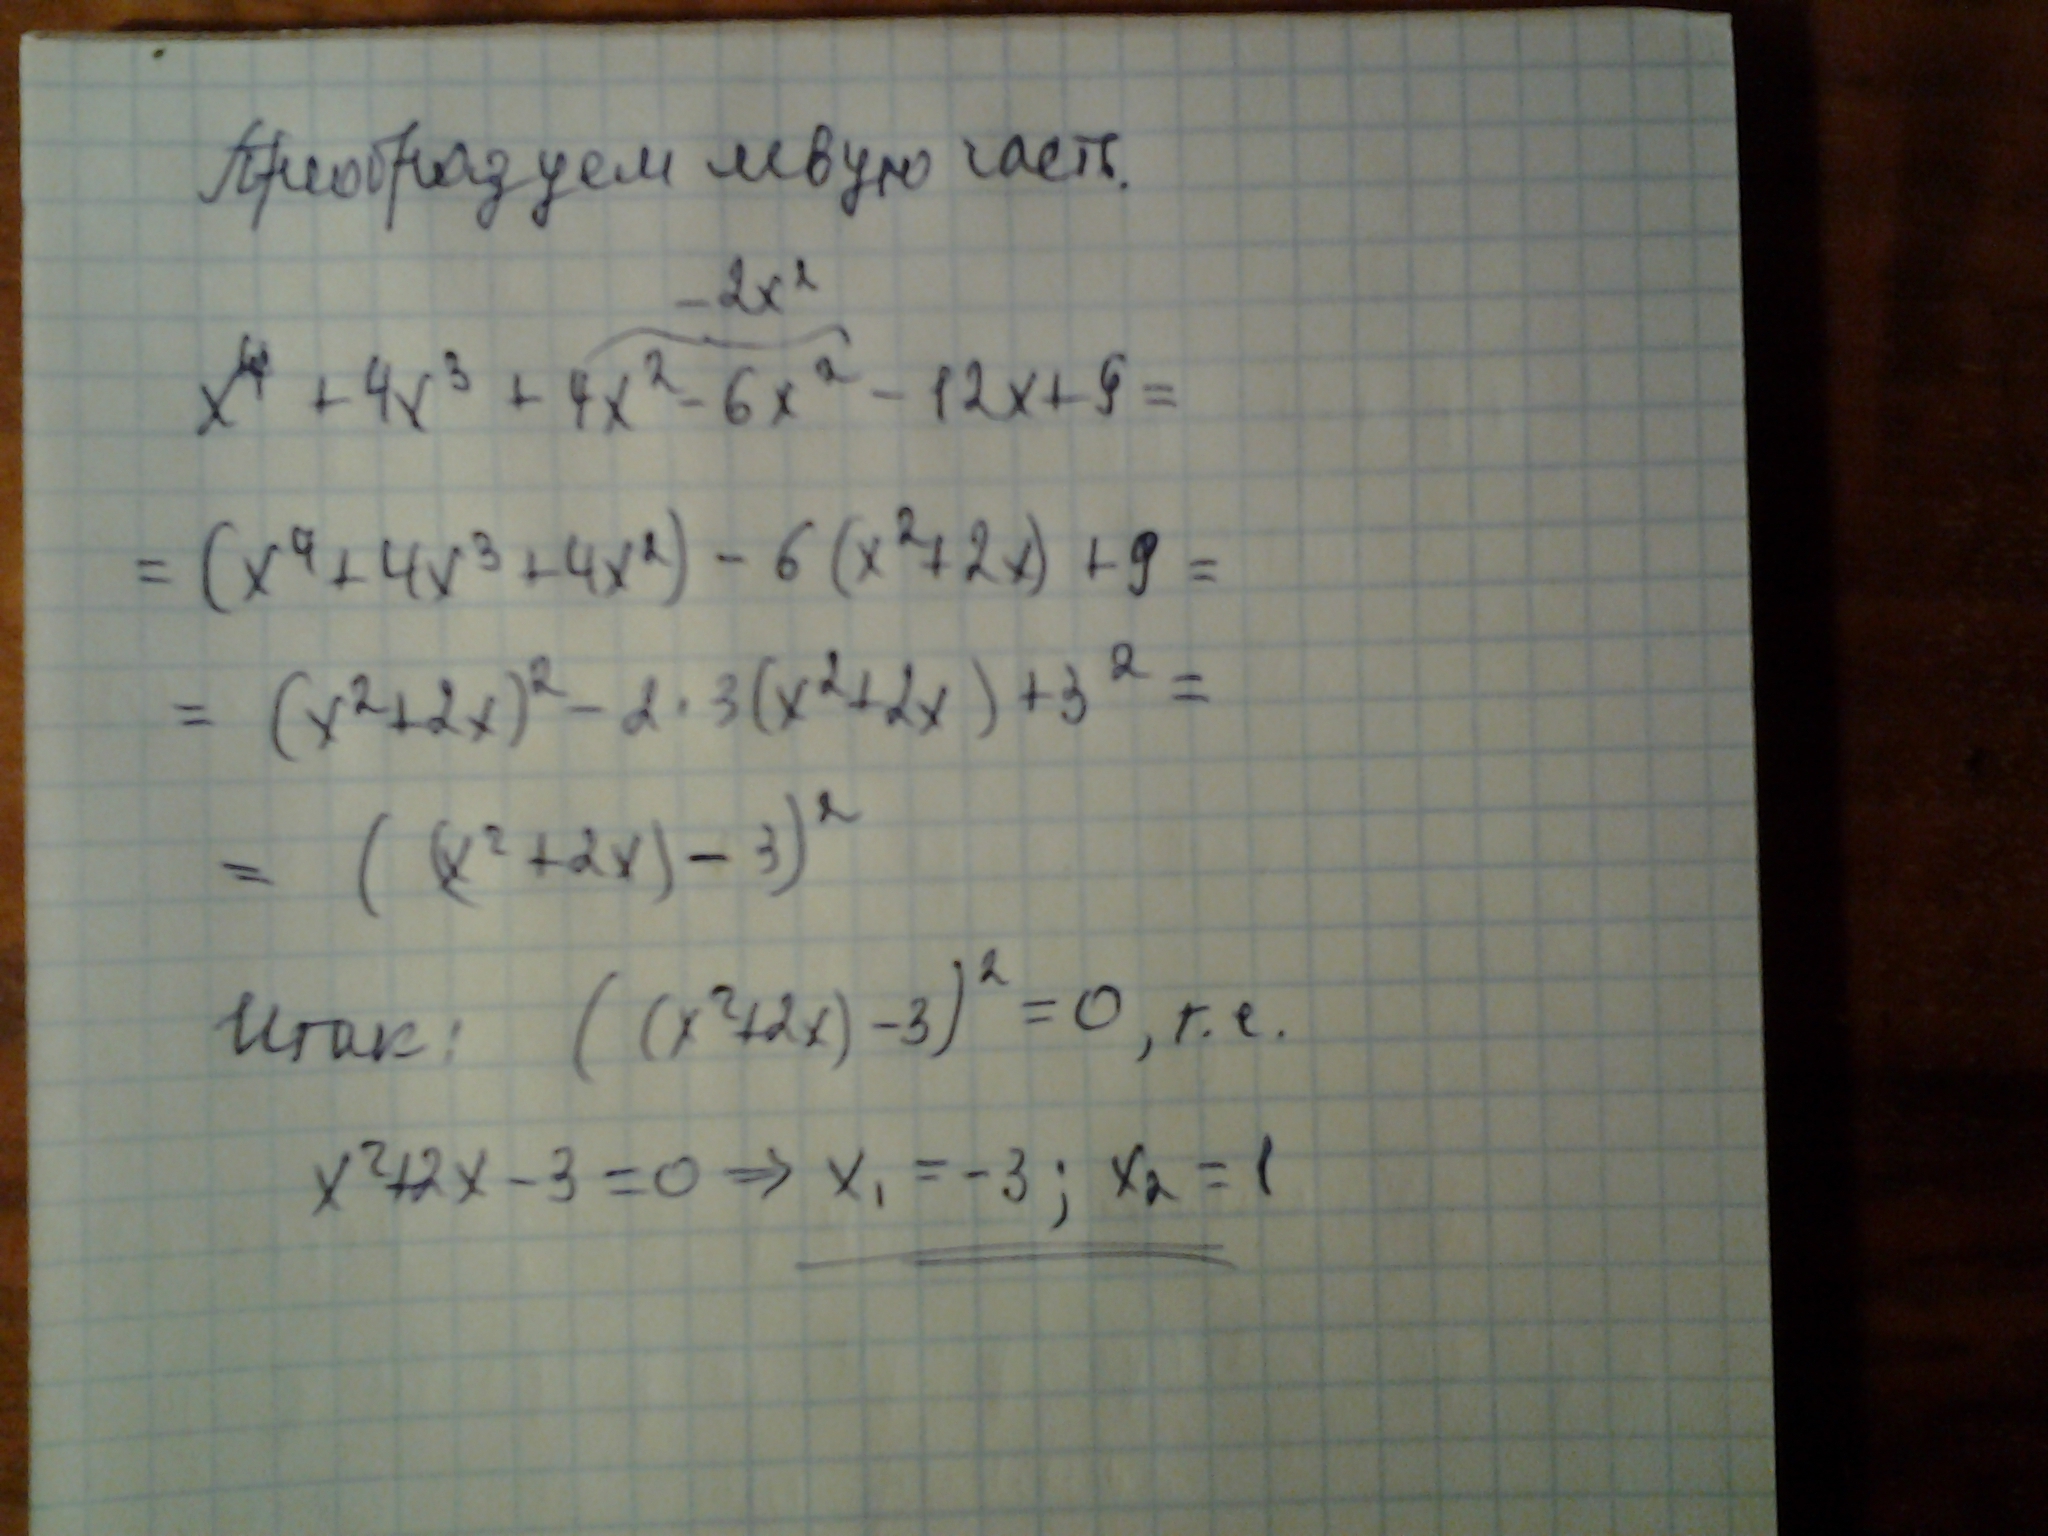 Преобразуем левую часть.
-2x²
x⁴ + 4x³ + 4x² - 6x² - 12x + 9 =
= (x⁴ + 4x³ + 4x²) - 6 (x² + 2x) + 9 =
= (x² + 2x)² - 2 · 3 (x² + 2x) + 3² =
= ((x² + 2x) - 3)²
Итак: ((x² + 2x) - 3)² = 0, т.е.
x² + 2x - 3 = 0 ⇒ x₁ = -3; x₂ = 1